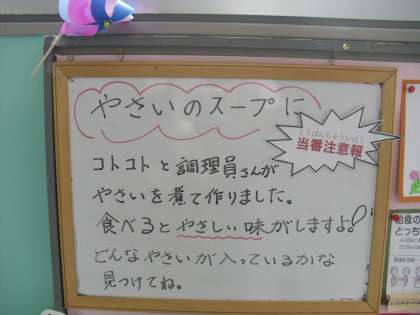 やさいのスープに
とうばんちゅういほう
当番注意報
コトコトと調理員さんが
やさいを煮て作りました。
食べるとやさしい味がしますよ。
どんなやさいが入っているかな
見つけてね。